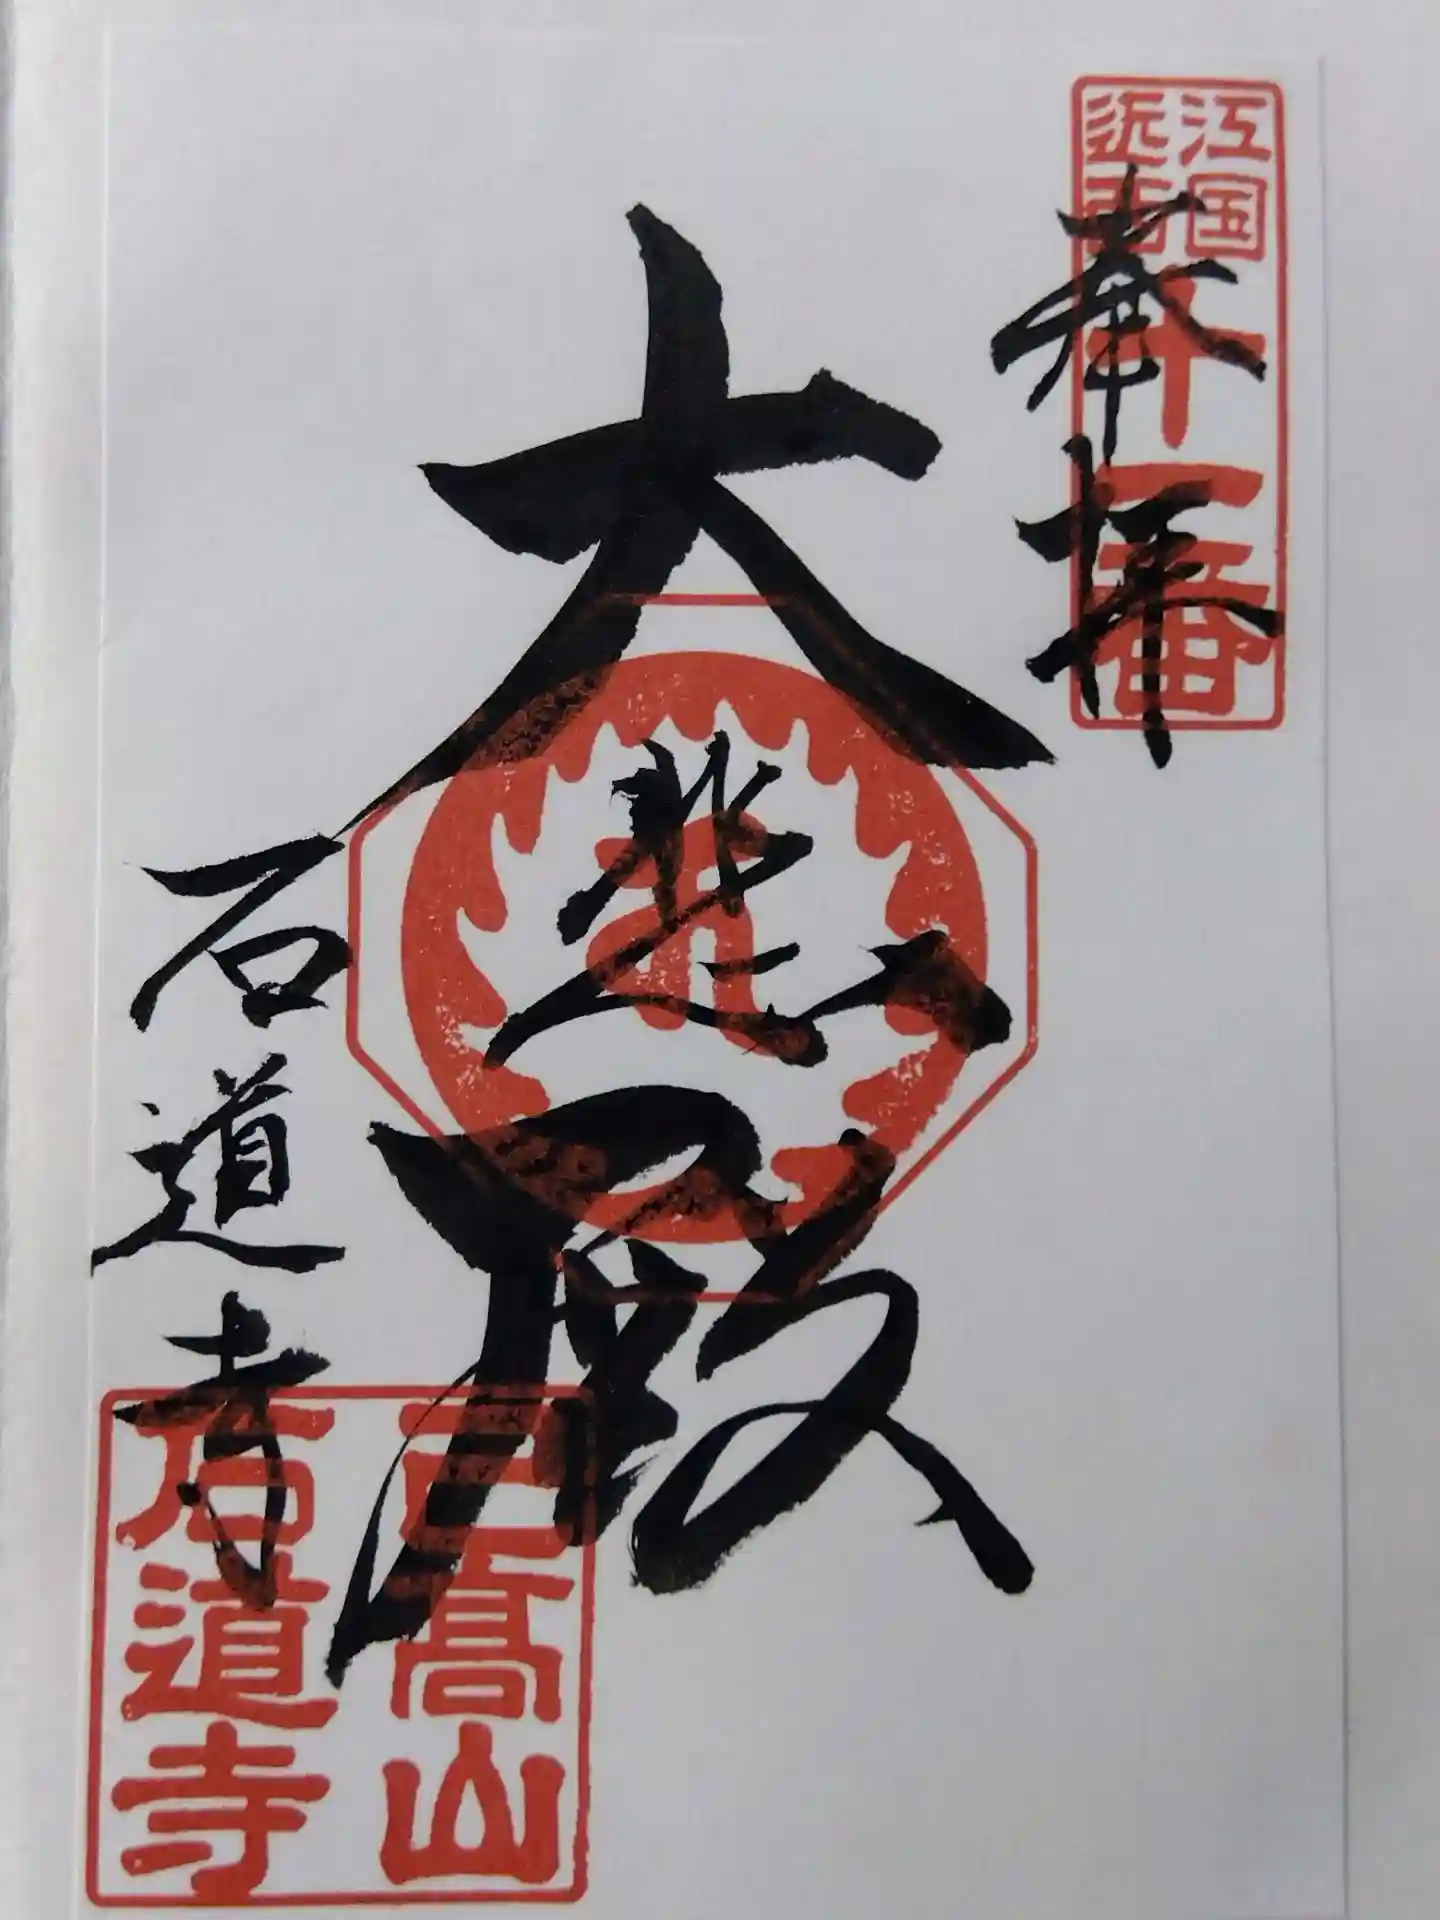 奉拝
近江
西国
十一番
大悲殿
石道寺
己高山
石道寺